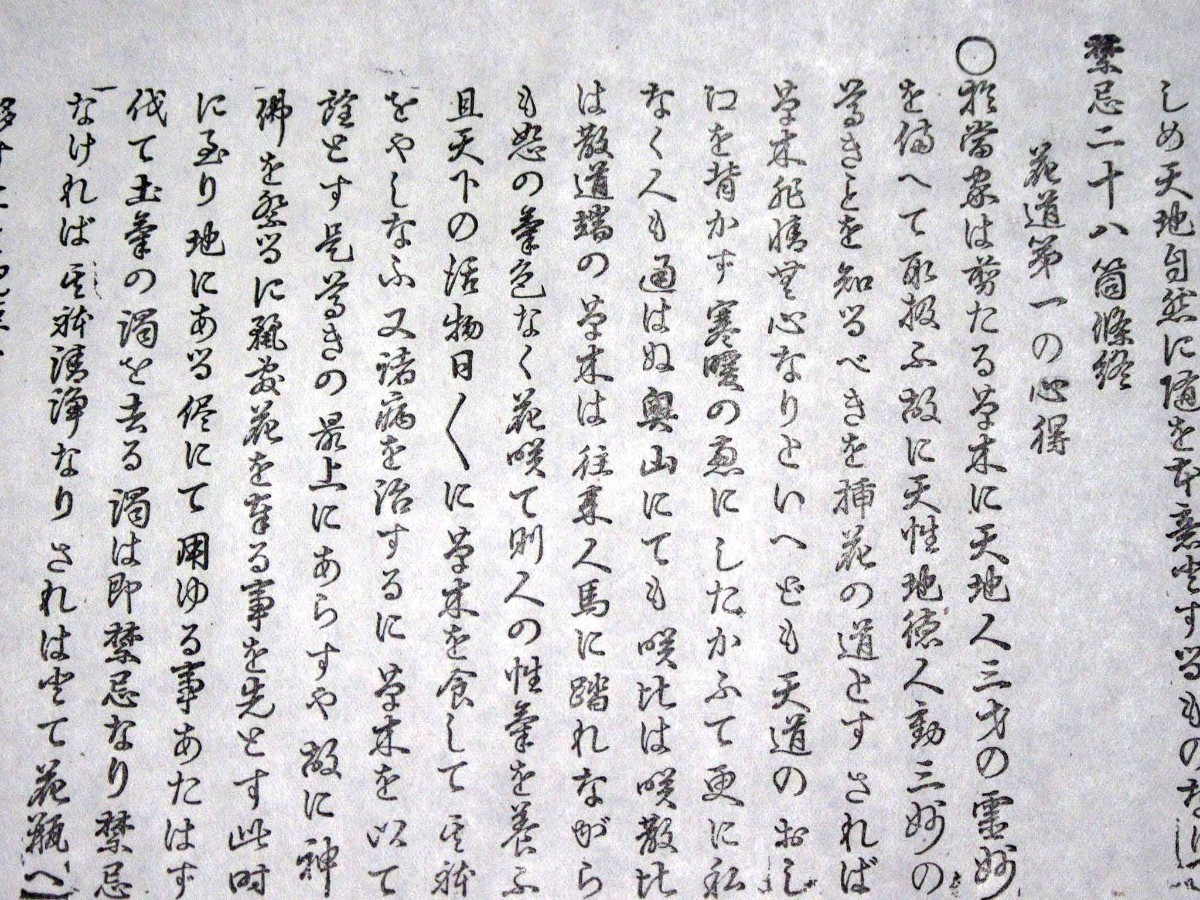 しめ天地自然に随を本意とするもの
禁忌二十八箇條終
花道第一の心得
〇於當家は剪たる草木に天地人三才の霊妙
を備へて取扱ふ故に天性地徳人動三妙の
尊きことを知るべきを挿花の道とすされば
草木非情無心なりといへども天道のおし
を背かす寒暖の
にしたかふて更に私
なく人も通はぬ奥山にても咲比は咲散比
は散道端の草木は往来人馬に踏れながら
も怒の氣色なく花咲て則人の性氣を養ふ
且天下の活物日〱に草木を食して其躰
をやしなふ又諸病を治するに草木を以て
詮とす是尊きの最上にあらすや故に神
佛を祭るに
花を奉る事を先とす此時
に至り地にある侭にて用ゆる事あたはす
伐て土氣の濁を去る濁は即禁忌なり禁忌
なければ其躰清浄なりされはとて花瓶へ